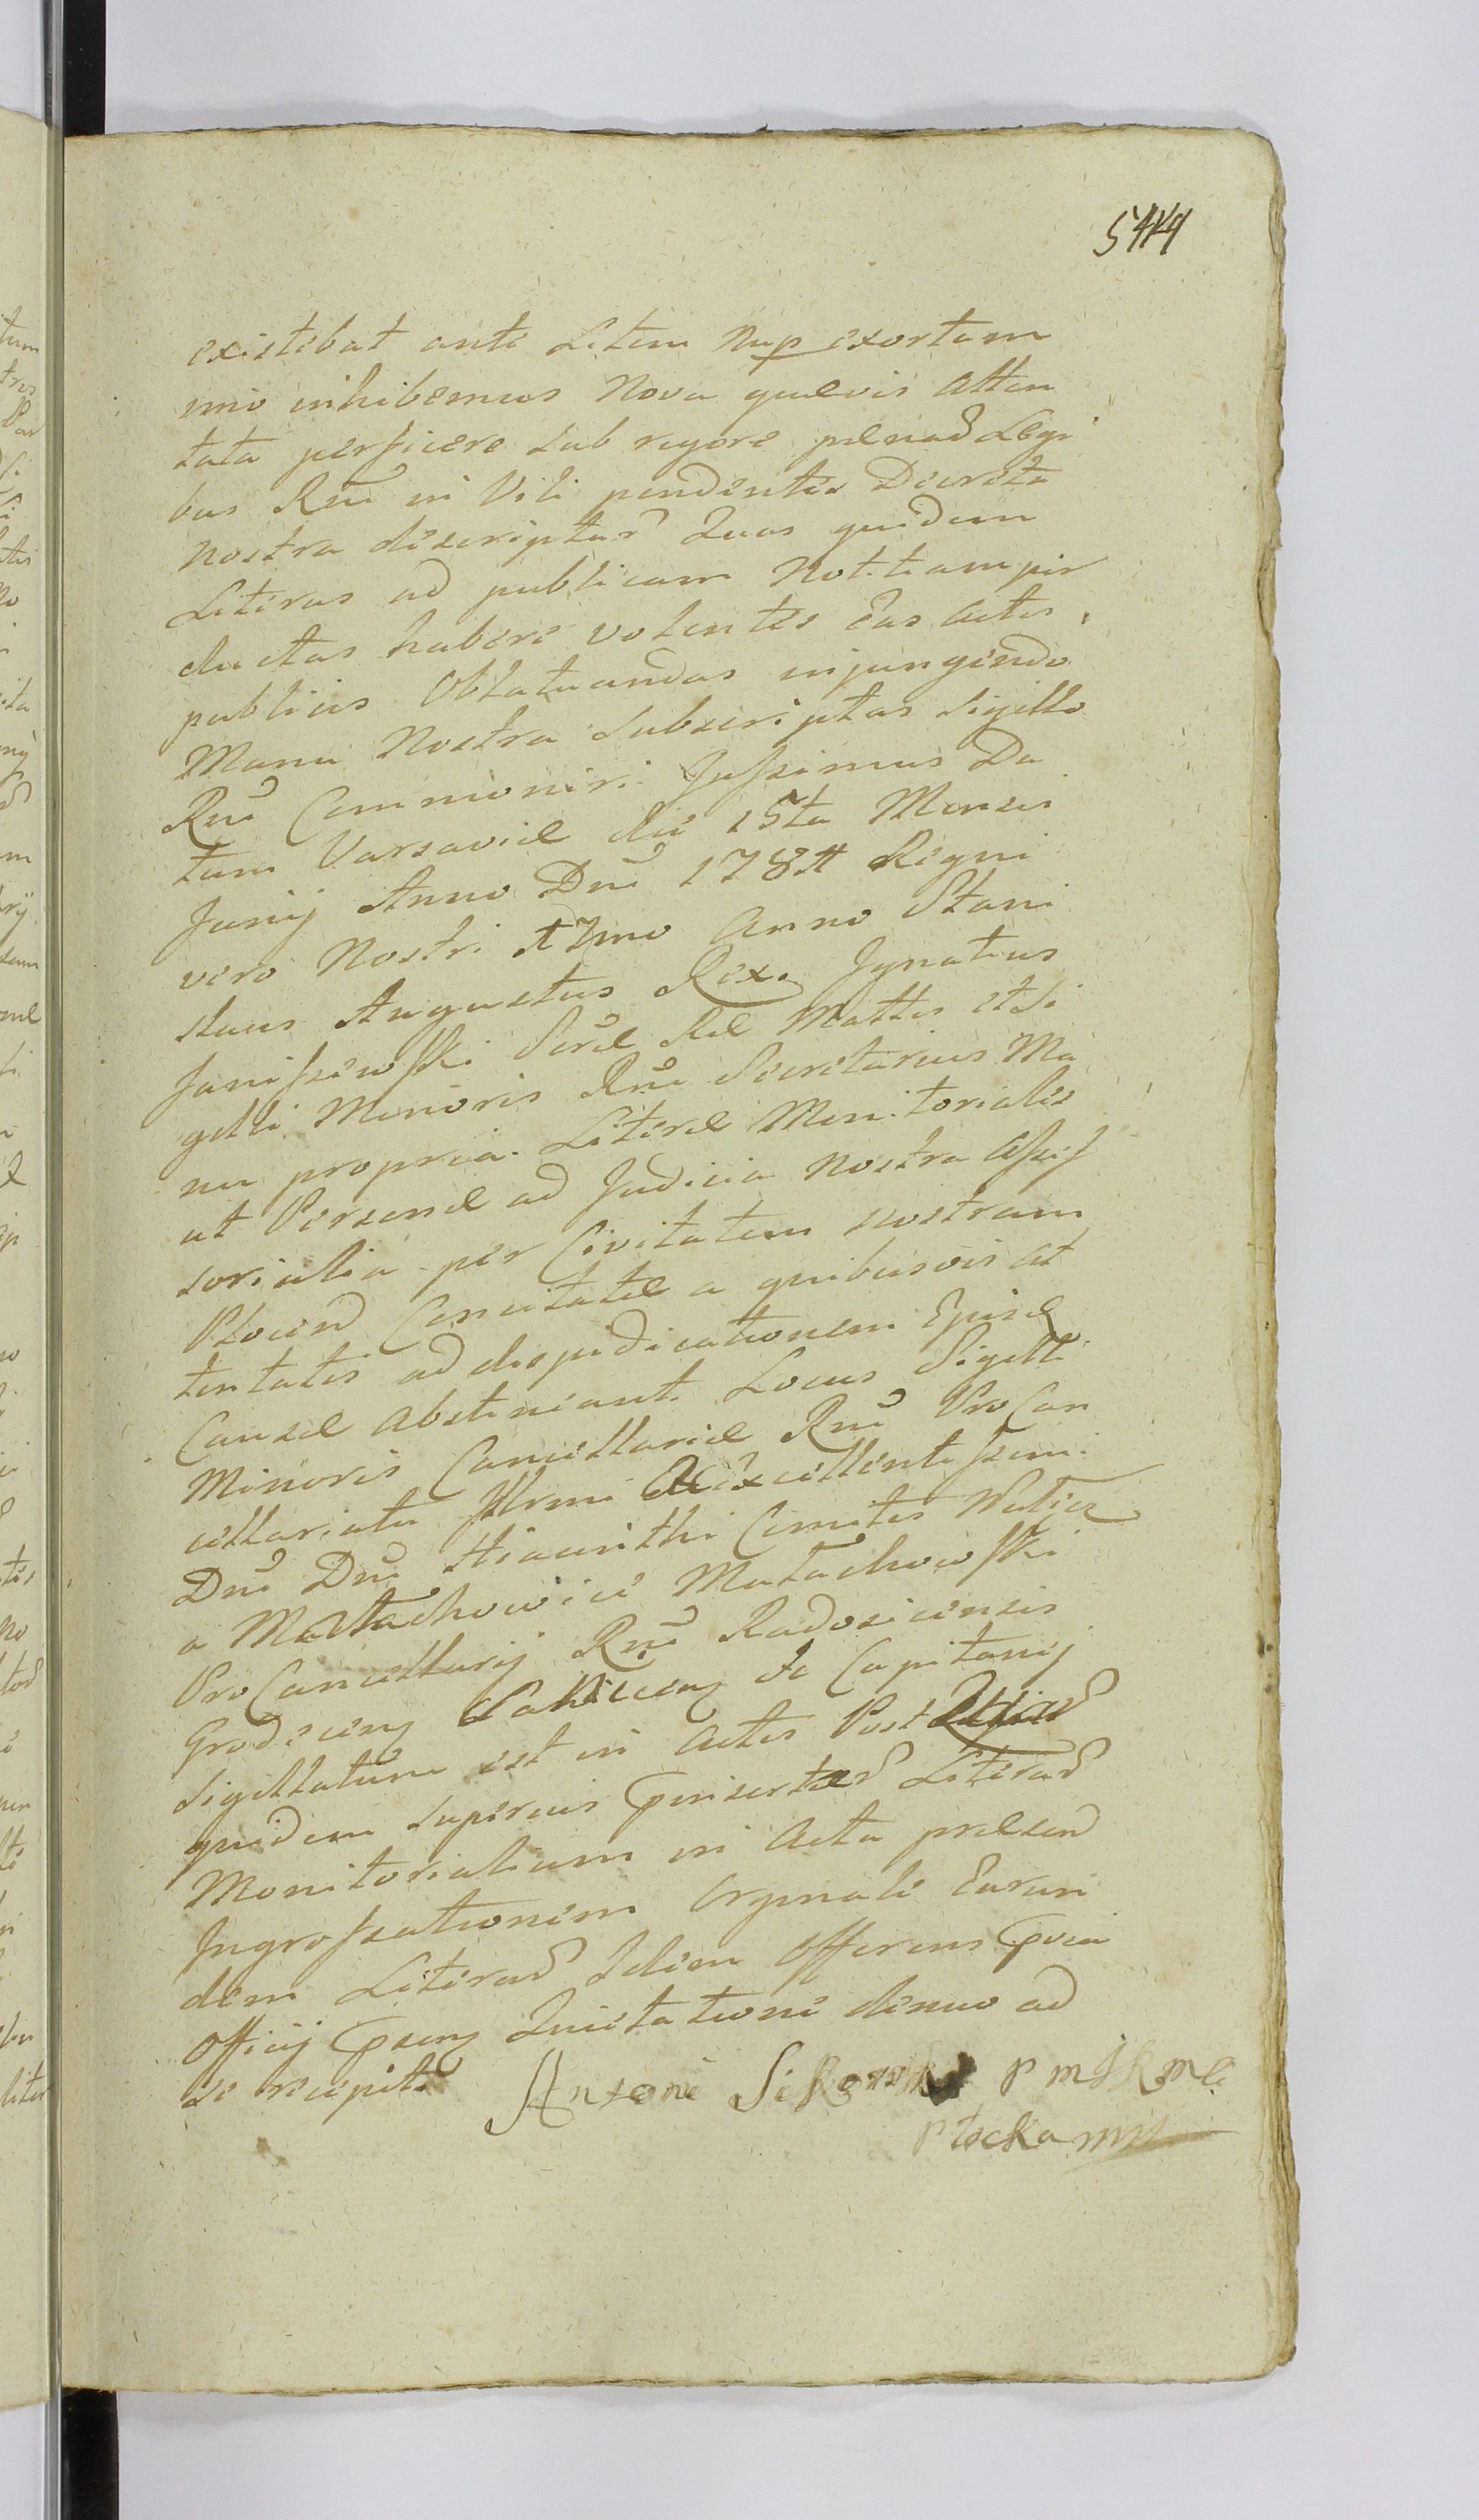 existebat ante Litem Nup exortam
imo inhibemus Nova quævis atten
tata perficere sub rigore pænaꝝ Legi
bus Rni in Vili pendentes Decreta
nostra descriptaꝝ Quas quidem
Literas ad publicam Notitiam per
ductas habere volentes eas actis
publicis Oblatuandas injungendo
Manu Nostra Subscriptas Sigillo
Rni Communiri Jussimus Da
tum Varsaviæ die 15ta Mensis
Junij Anno Dni 1784 Regni
vero Nostri Anno Stani
slaus Augustus Rex. Ignatius
Janiszewski Sæ Ræ Mattis et Si
gilli Minoris Rni Secretarius Ma
nu propria. Literæ Monitoriales
ut Personæ ad Judicia Nostra Asses
sorialia per Civitatem nostram
Plocen Concitatæ a quibusvis at
tentatis ad disjudicationem Ejusd
Causæ Abstineant. Locus Sigilli
Minoris Cancellariæ Rni ProCan
cellariatu Illrmi Excellentissimi
Dni Dni Hiacinthi Comitis Nałęcz
a Małachowice Małachowski
ProCancellarij Rni Radosicensis
Grodecen Capitanij
Sigillatum est in Actis Post
quidem superius insertaꝝ Literaꝝ
Monitorialium in Acta præsen
Ingrossationem Orginale Earun
dem Literaꝝ Idem Offerens
Officij Quietatione denuo ad
se recepit
Antoni Sikorski P m J K m C
Płocka mp